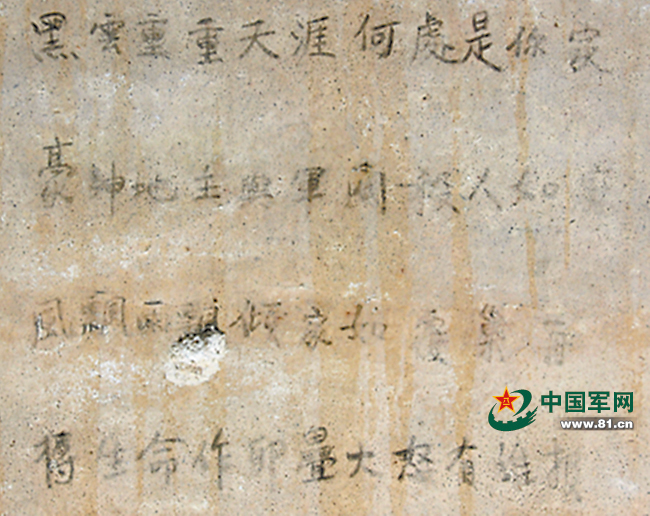 黑雲重重天涯何處是你家
豪紳地主與軍閥殺人如
風飄雨飄傾家如覆巢
生命作卵壘大怒有誰
中国军网
www.81.cn